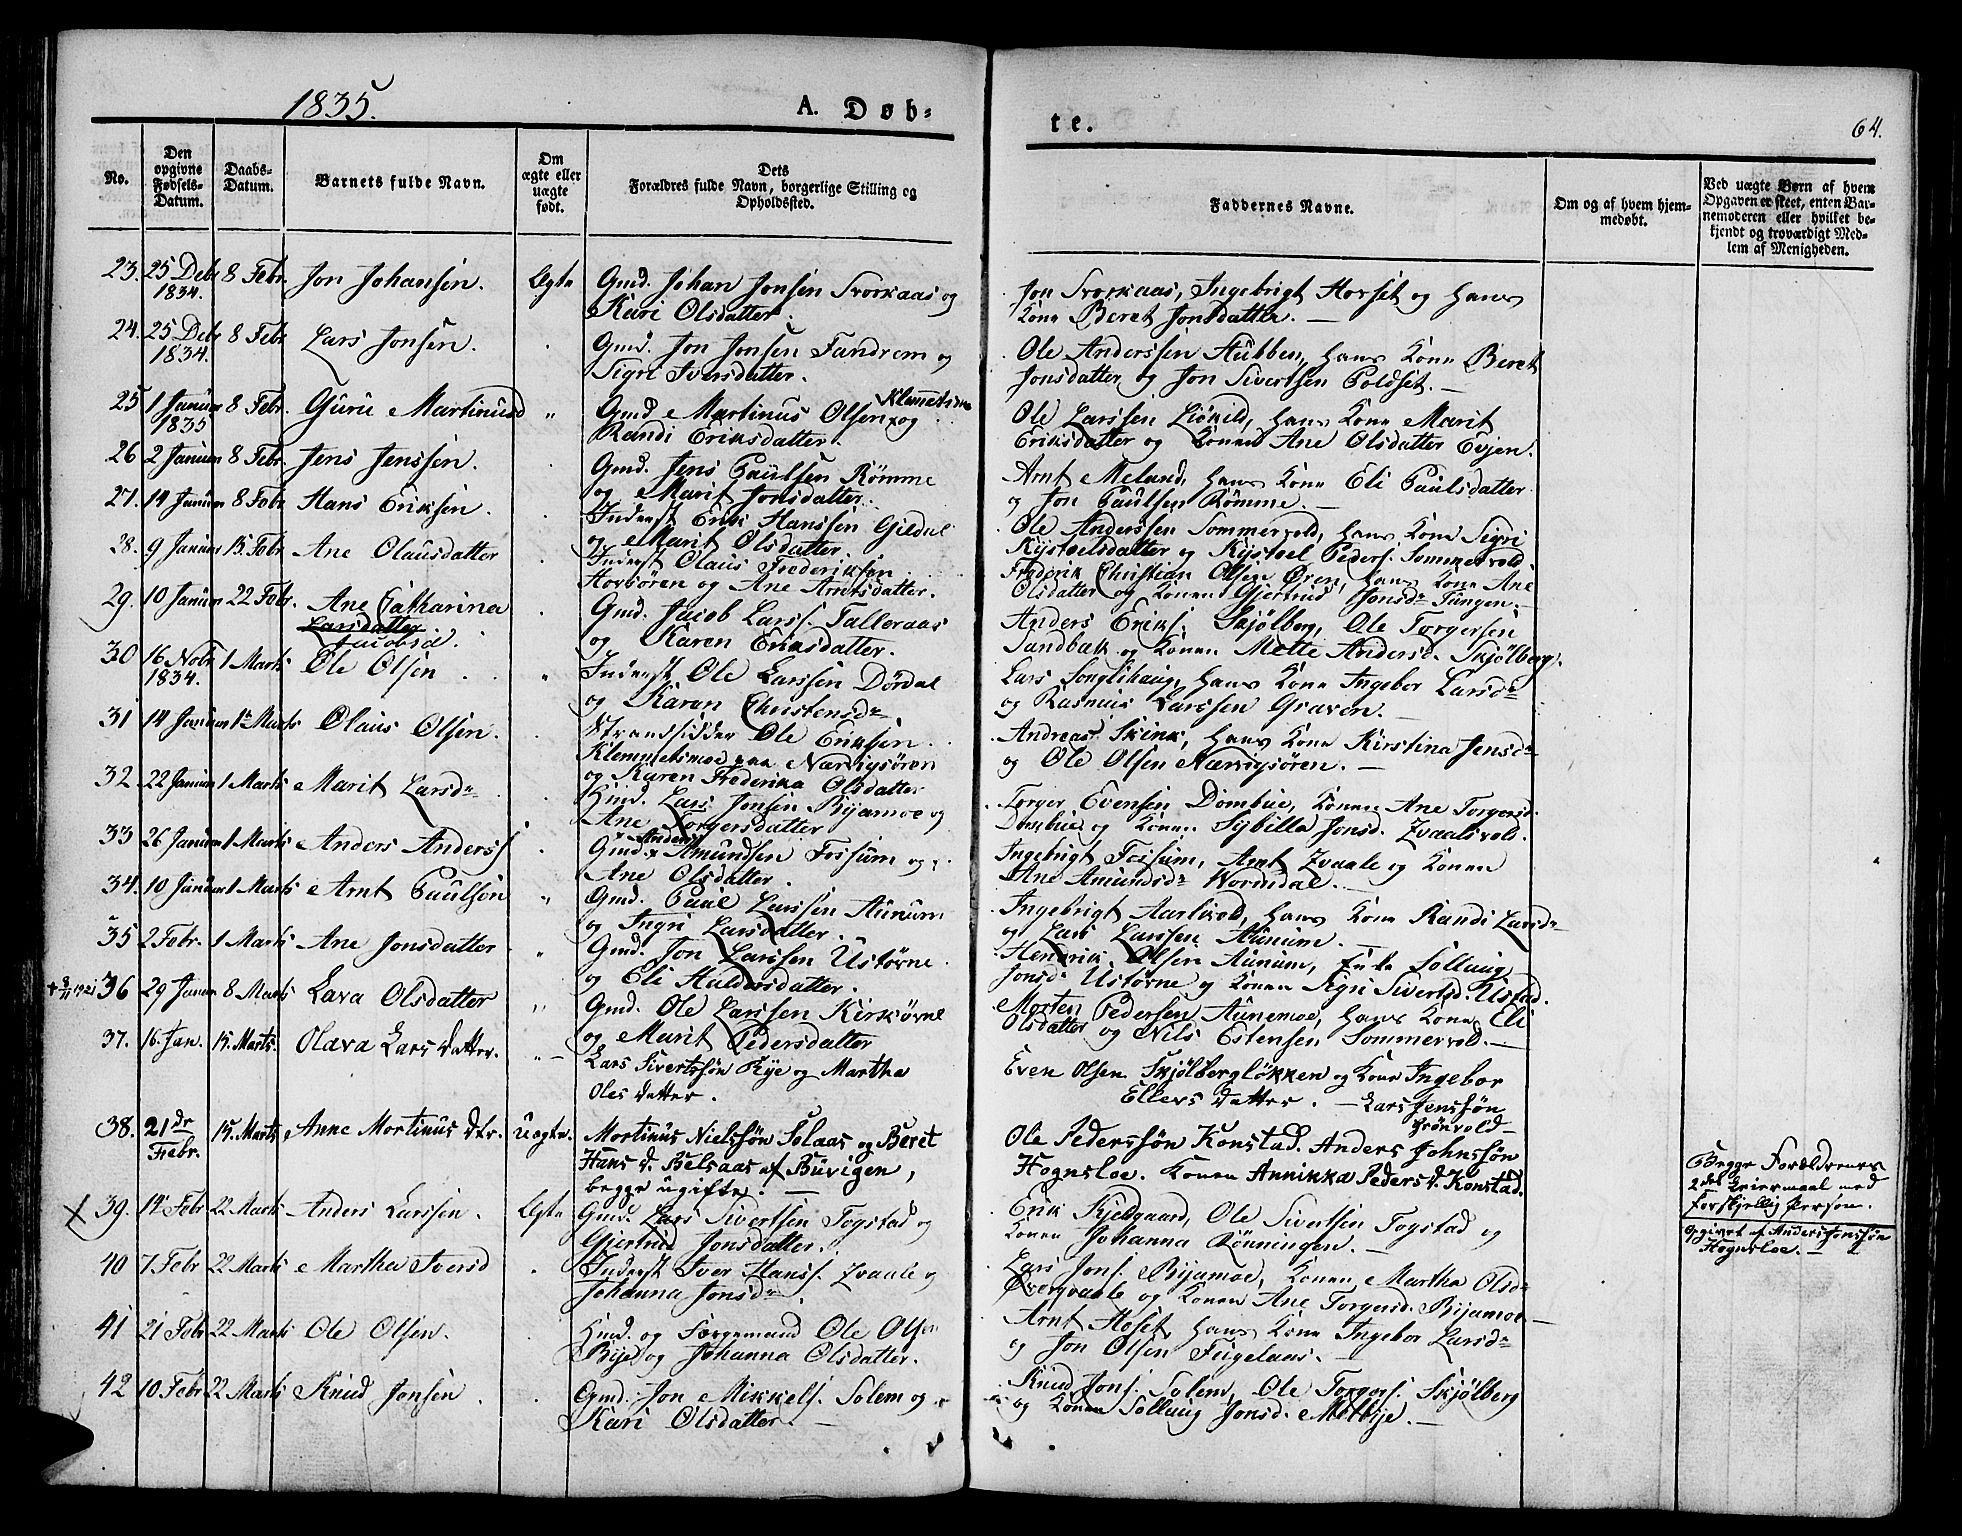 1835.
A. Døb-
te.
64.
No.
Den opgivne Fødsels-Datum.
Daabs-Datum.
Barnets fulde Navn.
Om ægte eller uægte født.
Dets Forældres fulde Navn, borgerlige Stilling og Opholdssted.
Faddernes Navne.
Om og af hvem hjem-medøbt.
Ved uægte Børn af hvem Opgaven er skeet, enten Bar-nemoderen eller hvilket be-kjendt og troværdigt Med-lem af Menigheden.
23. 25 Debr 8 Febr. Jon Johansen. Ægte Gmd. Johan Jonsen Svorkaas og Jon Svorkaas, Ingebrigt Horset og hans
1834. Kari Olsdatter. Kone Beret Jonsdatter. —
24. 25 Debr 8 Febr Lars Jonsen. Gmd. Jon Jonsen Fandrem og Ole Anderssen Hubben, hans Kone Beret
1834. Sigri Iversdatter. Jonsdatter og Jon Sivertsen Poldset. —
25 1 Januar 8 Febr. Guru Martinusd „ Gmd Martinus Olsen Klemetsmo og Ole Larssen Liökild, hans Kone Marit
1835 Randi Eriksdatter. Eriksdatter og Konen Ane Olsdatter Evjen.
26 2 Januar 8 Febr. Jens Jenssen. Gmd. Jens Paulsen Römme Arnt Melund, hans Kone Eli Paulsdatter
og Marit Jonsdatter. og Jon Paulsen Römme. —
27. 14 Januar 8 Febr Hans Eriksen. Inderst Erik Hanssen Gildal Ole Anderssen Sommervold, hans Kone Sigri
og Marit Olsdatter. Kystoelsdatter og Kystoel Peders. Sommervold.
28. 9 Januar 15 Febr Ane Olausdatter Inderst Olaus Frederiksen Frederik Christian Olsen Ören, hans Kone Ane
Horbören og Ane Arntsdatter. Olsdatter og Konen Gjertrud Jonsdr Tungen. —
29. 10 Januar 22 Febr. Ane Catharina Gmd. Jacob Larss. Talleraas Anders Eriks. Skjölberg, Ole Torgersen
Larsdatter Jacobsd. og Karen Eriksdatter. Sandbæk og Konen Mette Andersd. Skjölberg.
30 16 Nobr 1 Marts Ole Olsen „ Inderst Ole Larssen Dördal Lars Songlihaug, hans Kone Ingebor Larsdr
1834. og Karen Christensdr og Rasmus Larssen Graven. —
31 14 Januar 1 Marts Olaus Olsen. Strandsidder Ole Eriksen Andreas Skink, hans Kone Kirstina Jensdr
Klemmetsmoe paa Nærvigsören og Ole Olsen Nærvigsören. —
og Karen Frederika Olsdatter
32. 22 Januar 1 Marts Marit Larsdr Huusmd. Lars Jonsen Byamoe og Torger Evensen Dombue, Konen Ane Torgersd.
Ane Torgersdatter Dombue og Konen Sybilla Jonsd. Zvaalsvold.
33 26 Januar 1 Marts Anders Anderss Gmd. Anders Amundsen Fossum og Ingebrigt Fossum, Arnt Zvaale og Konen
Ane Olsdatter. Ane Amundsdr Wormdal. —
34. 10 Januar 1 Marts Arnt Paulsen „ Gmd. Paul Larssen Aunum Ingebrigt Aarlivold, hans Kone Randi Larsdr
og Ingri Larsdatter. og Lars Larssen Aunum. —
35 2 Febr. 1 Marts Ane Jonsdatter „ Gmd. Jon Larssen Ustörne Hendrik Olsen Aunum, Enke Sollaug
og Eli Haldorsdatter. Jonsd. Ustörne og Konen Sigri Sivertsd. Ustad.
36 29 Januar 8 Marts Lava Olsdatter „ Gmd. Ole Larssen Kirkörne Morten Pedersen Aunemoe, hans Kone Eli
og Marit Pedersdatter Olsdatter og Nils Estensen Sommervold. —
37. 16. Jan. 15. Marts. Olava Lars datter. „ Lars Sivertssön Rye og Martha Even Olsen Skjölberglökken og Kone Ingebor
Oles datter. Ellers datter. — Lars Jenssön
Grönvold —
38. 21de 15. Marts Anne Mortinus dtr. Uægte. Mortinus Nielssön Solaas og Beret Ole Pederssön Konstad. Anders Johnssön
Febr. Hans d. Belsaas af Buvigen, Hognsloe. Konen Annikka Peders d. Konstad.
begge ugifte. —
Begge Forældrenes
2det Leiermaal med
forskjellig Person.
Opgivet af Anders Jonssön
Hognsloe. —
39. 14 Febr 22 Marts Anders Larssen. Ægte Gmd. Lars Sivertsen Togstad og Erik Kjeldgaard, Ole Sivertsen Togstad og
Gjertrud Jonsdatter. Konen Johanna Rönningen. —
40 7 Febr 22 Marts Martha Iversd Inderst Iver Hanss. Zvaale og Lars Jons. Byamoe, Konen Martha Olsdr
Johanna Jonsdr Övergvaale og Konen Ane Torgersd. Byamoe —
41 21 Febr 22 Marts Ole Olsen. Huusmd. og Færgemand Ole Olsen Arnt Hoset, hans Kone Ingebor Larsdr
Bye og Johanna Olsdatter. og Jon Olsen Fugelaas. —
42 10 Febr 22 Marts Knud Jonsen. Gmd. Jon Mikkels. Solem og Knud Jons. Solem, Ole Torgers. Skjölberg
Kari Olsdatter. — og Konen Sollaug Jonsd. Melbye. —